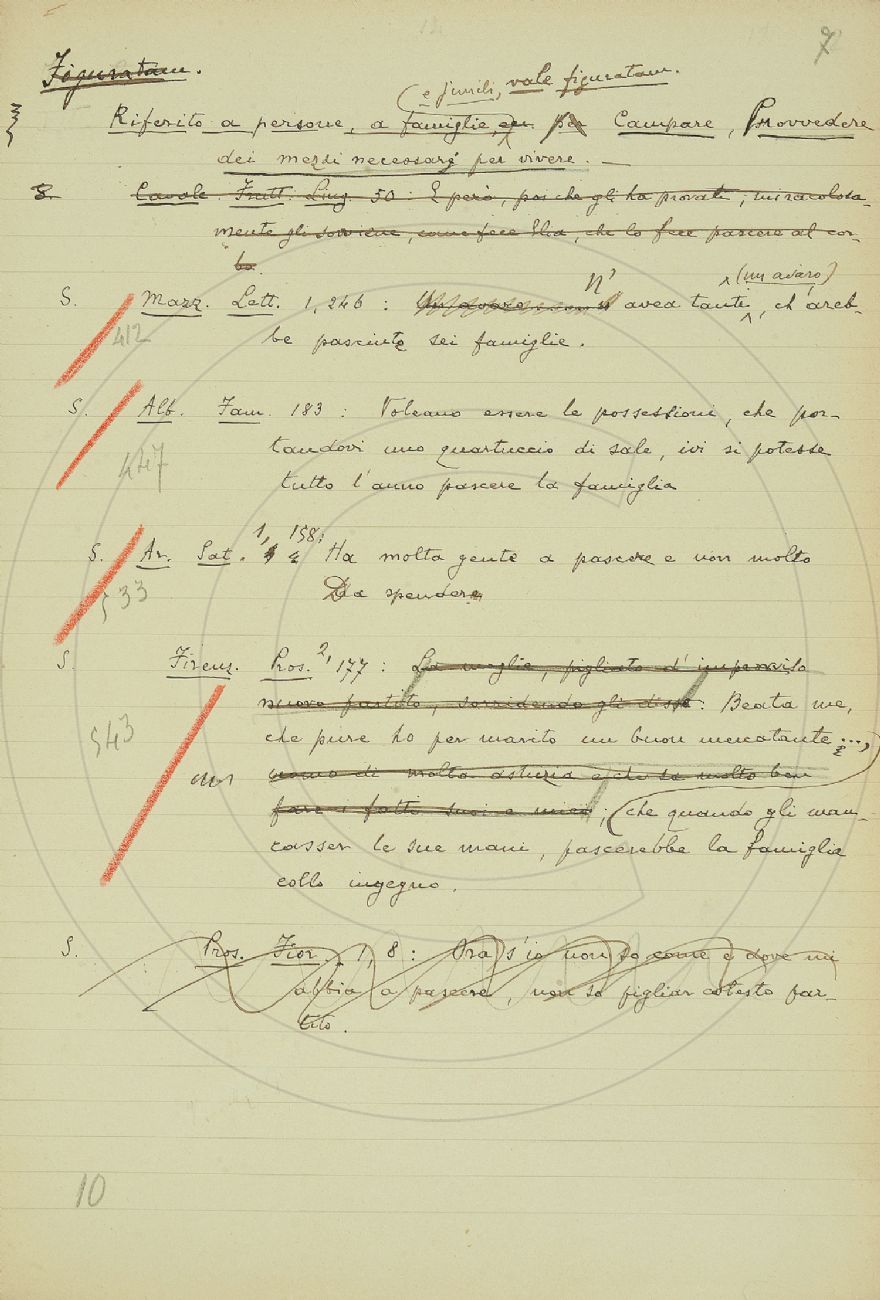 7
Figuratam.
(e simili, vale figuratam.
Riferito a persone, a famiglie, per Campare, Provvedere
dei mezzi necessarj per vivere. —
S. Cavalc. Frutt. Ling. 50: E però, poi che gli ha provati, miracolosa-
mente gli sovviene, come fece Elia, che lo fece pascere al cor-
bo.
S. Mazz. Lett. 1, 246: Un avaro n' avea tanti (un avaro), ch' areb-
412
be pasciute sei famiglie.
S. Alb. Fam. 183: Voleano essere le possessioni, che por-
tandovi uno quartuccio di sale, ivi si potesse
447
tutto l'anno pascere la famiglia
S. Ar. Sat. 1, 158: Ha molta gente a pascere e non molto
533
Da spendere
S. Firenz. Pros. 2, 177: La moglie, pigliato d'improvviso
nuovo partito, sorridendo gli disse: Beata me,
543
che pure ho per marito un buon mercatante ...,
uomo di molta astuzia e che sa molto ben
fare i fatti suoi e miei; (che quando gli man-
casser le sue mani, pascerebbe la famiglia
collo ingegno.
S. Pros. Fior. 1, 8: Ora s'io non so come e dove mi
abbia a pascere, non so pigliar cotesto par-
tito.
10